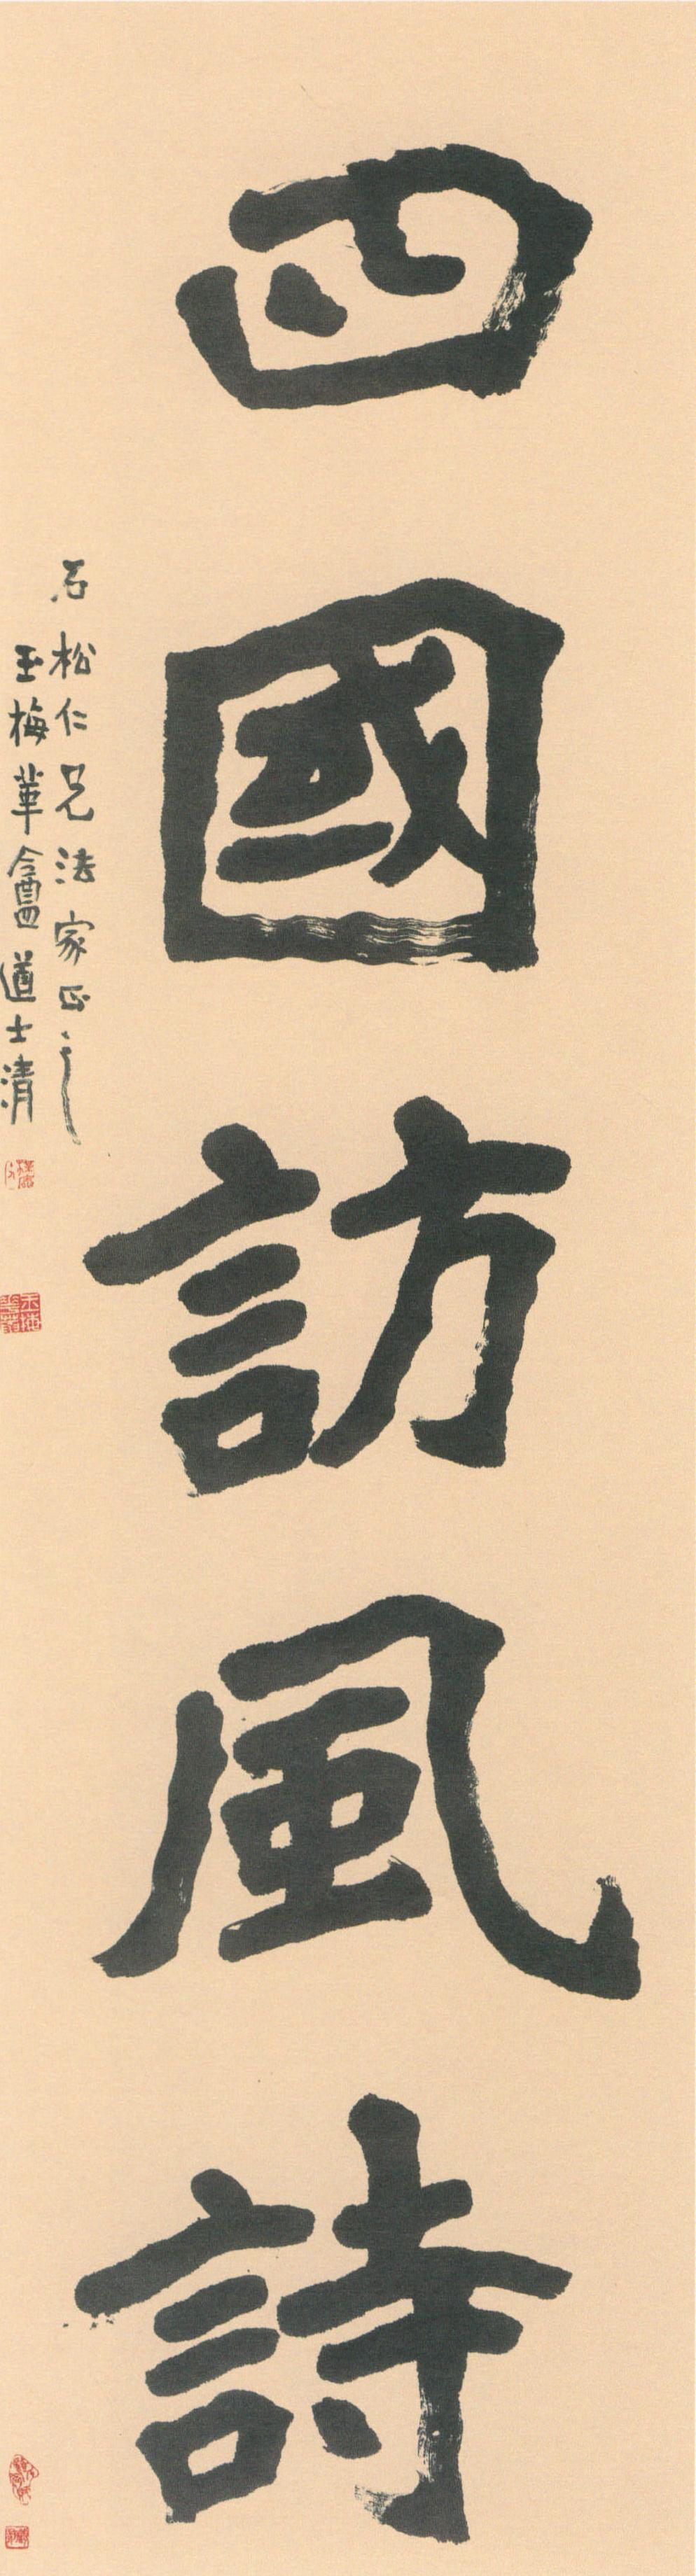 四國訪風詩
石松仁兄法家正之
玉梅華盦道士清